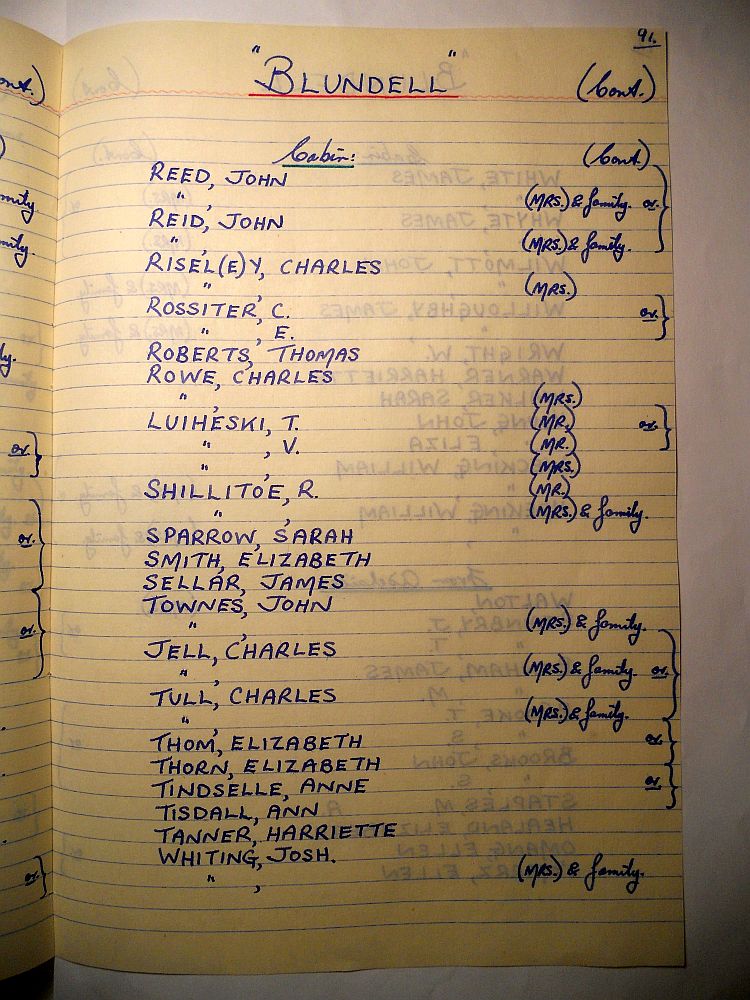 91.
"BLUNDELL" (Cont.)
Cabin: (Cont)
REED, JOHN
" , (MRS.) & family. or.
REID, JOHN
" , (MRS.) & family.
RISEL(E)Y, CHARLES
" , (MRS.)
ROSSITER, C. or.
" , E.
ROBERTS, THOMAS
ROWE, CHARLES
" , (MRS.)
LUIHESKI, T. (MR.) or.
" , V. (MR.)
" , (MRS.)
SHILLITOE, R. (MR.)
" , (MRS.) & family.
SPARROW, SARAH
SMITH, ELIZABETH
SELLAR, JAMES
TOWNES, JOHN
" , (MRS.) & family.
JELL, CHARLES
" , (MRS.) & family. or.
TULL, CHARLES
" , (MRS.) & family.
THOM, ELIZABETH or.
THORN, ELIZABETH
TINDSELLE, ANNE or.
TISDALL, ANN
TANNER, HARRIETTE
WHITING, JOSH.
" , (MRS.) & family.